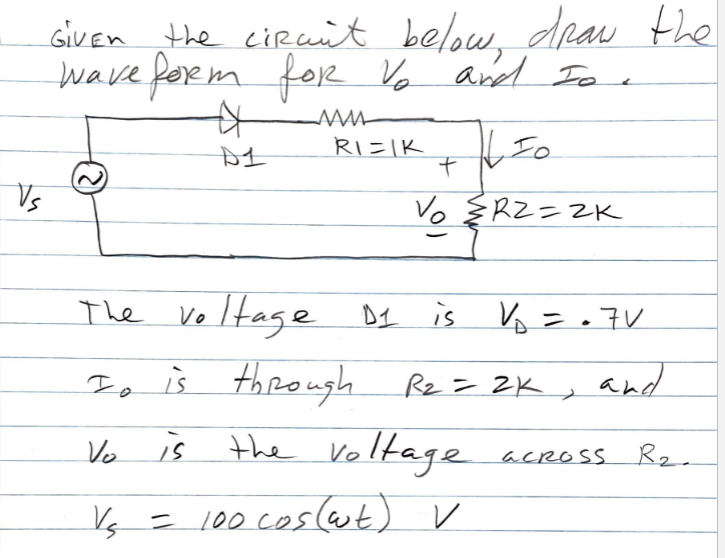 GIVEn the ciRcuit below, draw the
wave foRm foR Vo and Io.
D1
R1=1K
Io
+
Vs
Vo
R2=2K
-
The voltage D1 is VD = .7V
Io is thRough R2 = 2K, and
Vo is the voltage acRoss R2.
Vs = 100 cos(ωt) V